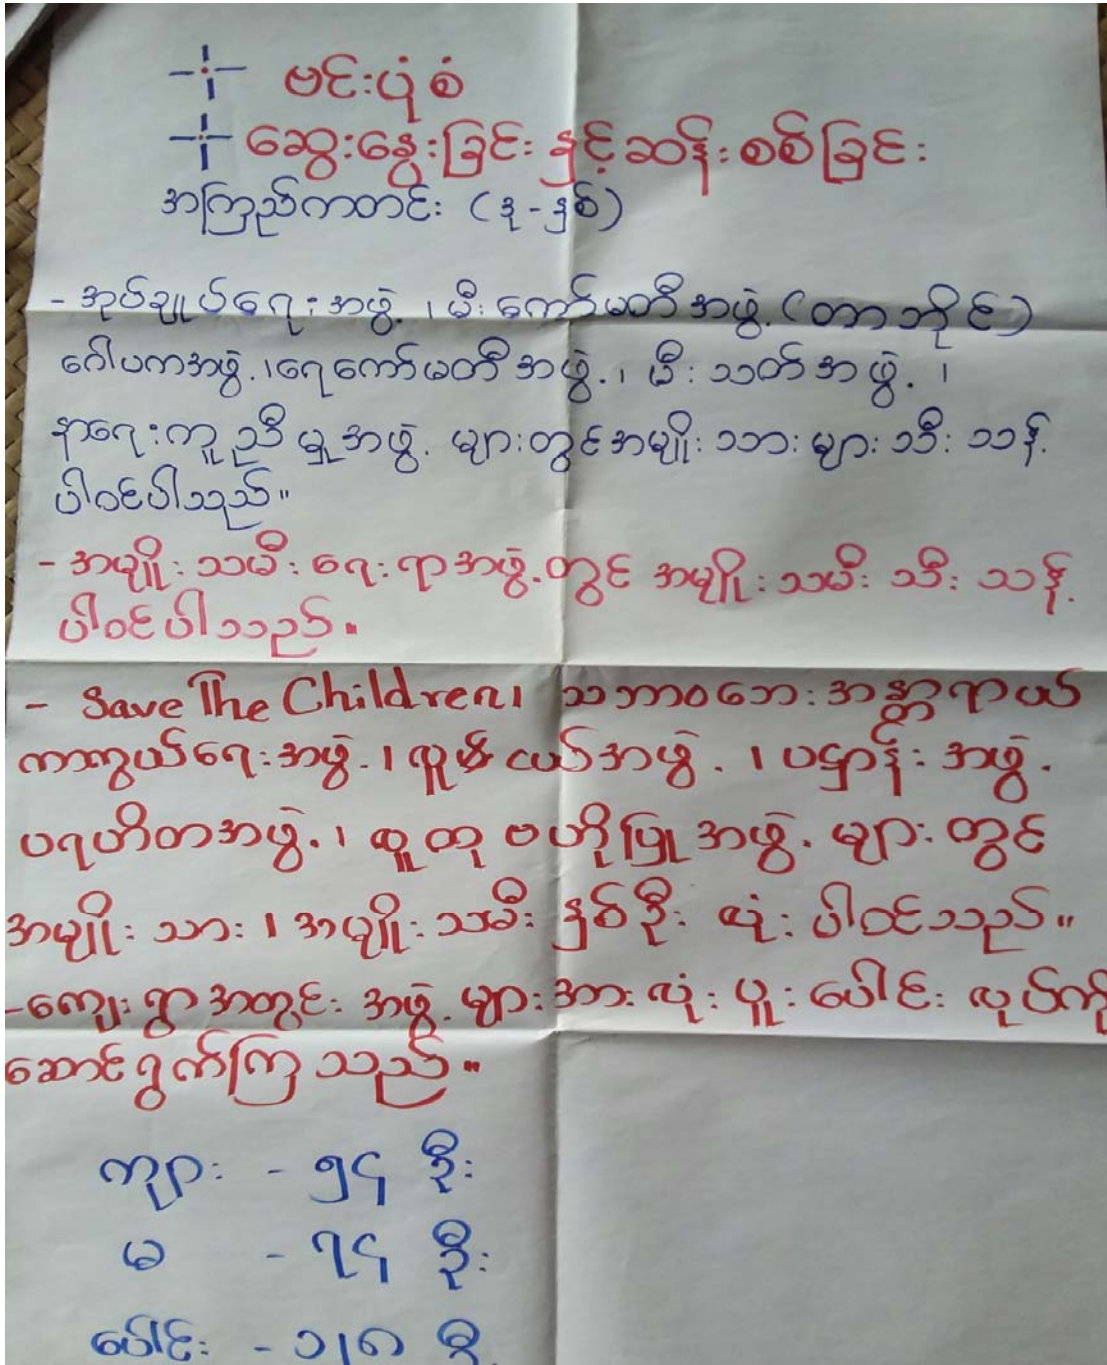 ဗင်းပုံစံ
ဆွေးနွေးခြင်း နှင့်ဆန်းစစ်ခြင်း
အကြည်ကတင်း (ဒု-နှစ်)
- အုပ်ချုပ်ရေးအဖွဲ့၊ မီးကော်မတီအဖွဲ့ (တာဘိုင်)
ဂေါပကအဖွဲ့၊ရေကော်မတီအဖွဲ့၊ မီးသတ်အဖွဲ့၊
နာရေးကူညီမှုအဖွဲ့ များတွင်အမျိုးသားများသီးသန့်
ပါဝင်ပါသည်။
- အမျိုးသမီးရေးရာအဖွဲ့တွင် အမျိုးသမီးသီးသန့်
ပါဝင်ပါသည်။
- Save The Children၊ သဘာဝဘေးအန္တရာယ်
ကာကွယ်ရေးအဖွဲ့၊ လူငယ်အဖွဲ့၊ ပဋ္ဌာန်းအဖွဲ့
ပရဟိတအဖွဲ့၊ လူထုဗဟိုပြုအဖွဲ့များတွင်
အမျိုးသား၊ အမျိုးသမီး နှစ်ဦးလုံးပါဝင်သည်။
-ကျေးရွာအတွင်း အဖွဲ့များအားလုံးပူးပေါင်းလုပ်ကို
ဆောင်ရွက်ကြသည်။
ကျား - ၅၄ ဦး
မ - ၇၄ ဦး
ပေါင်း - ၁၂၈ ဦး